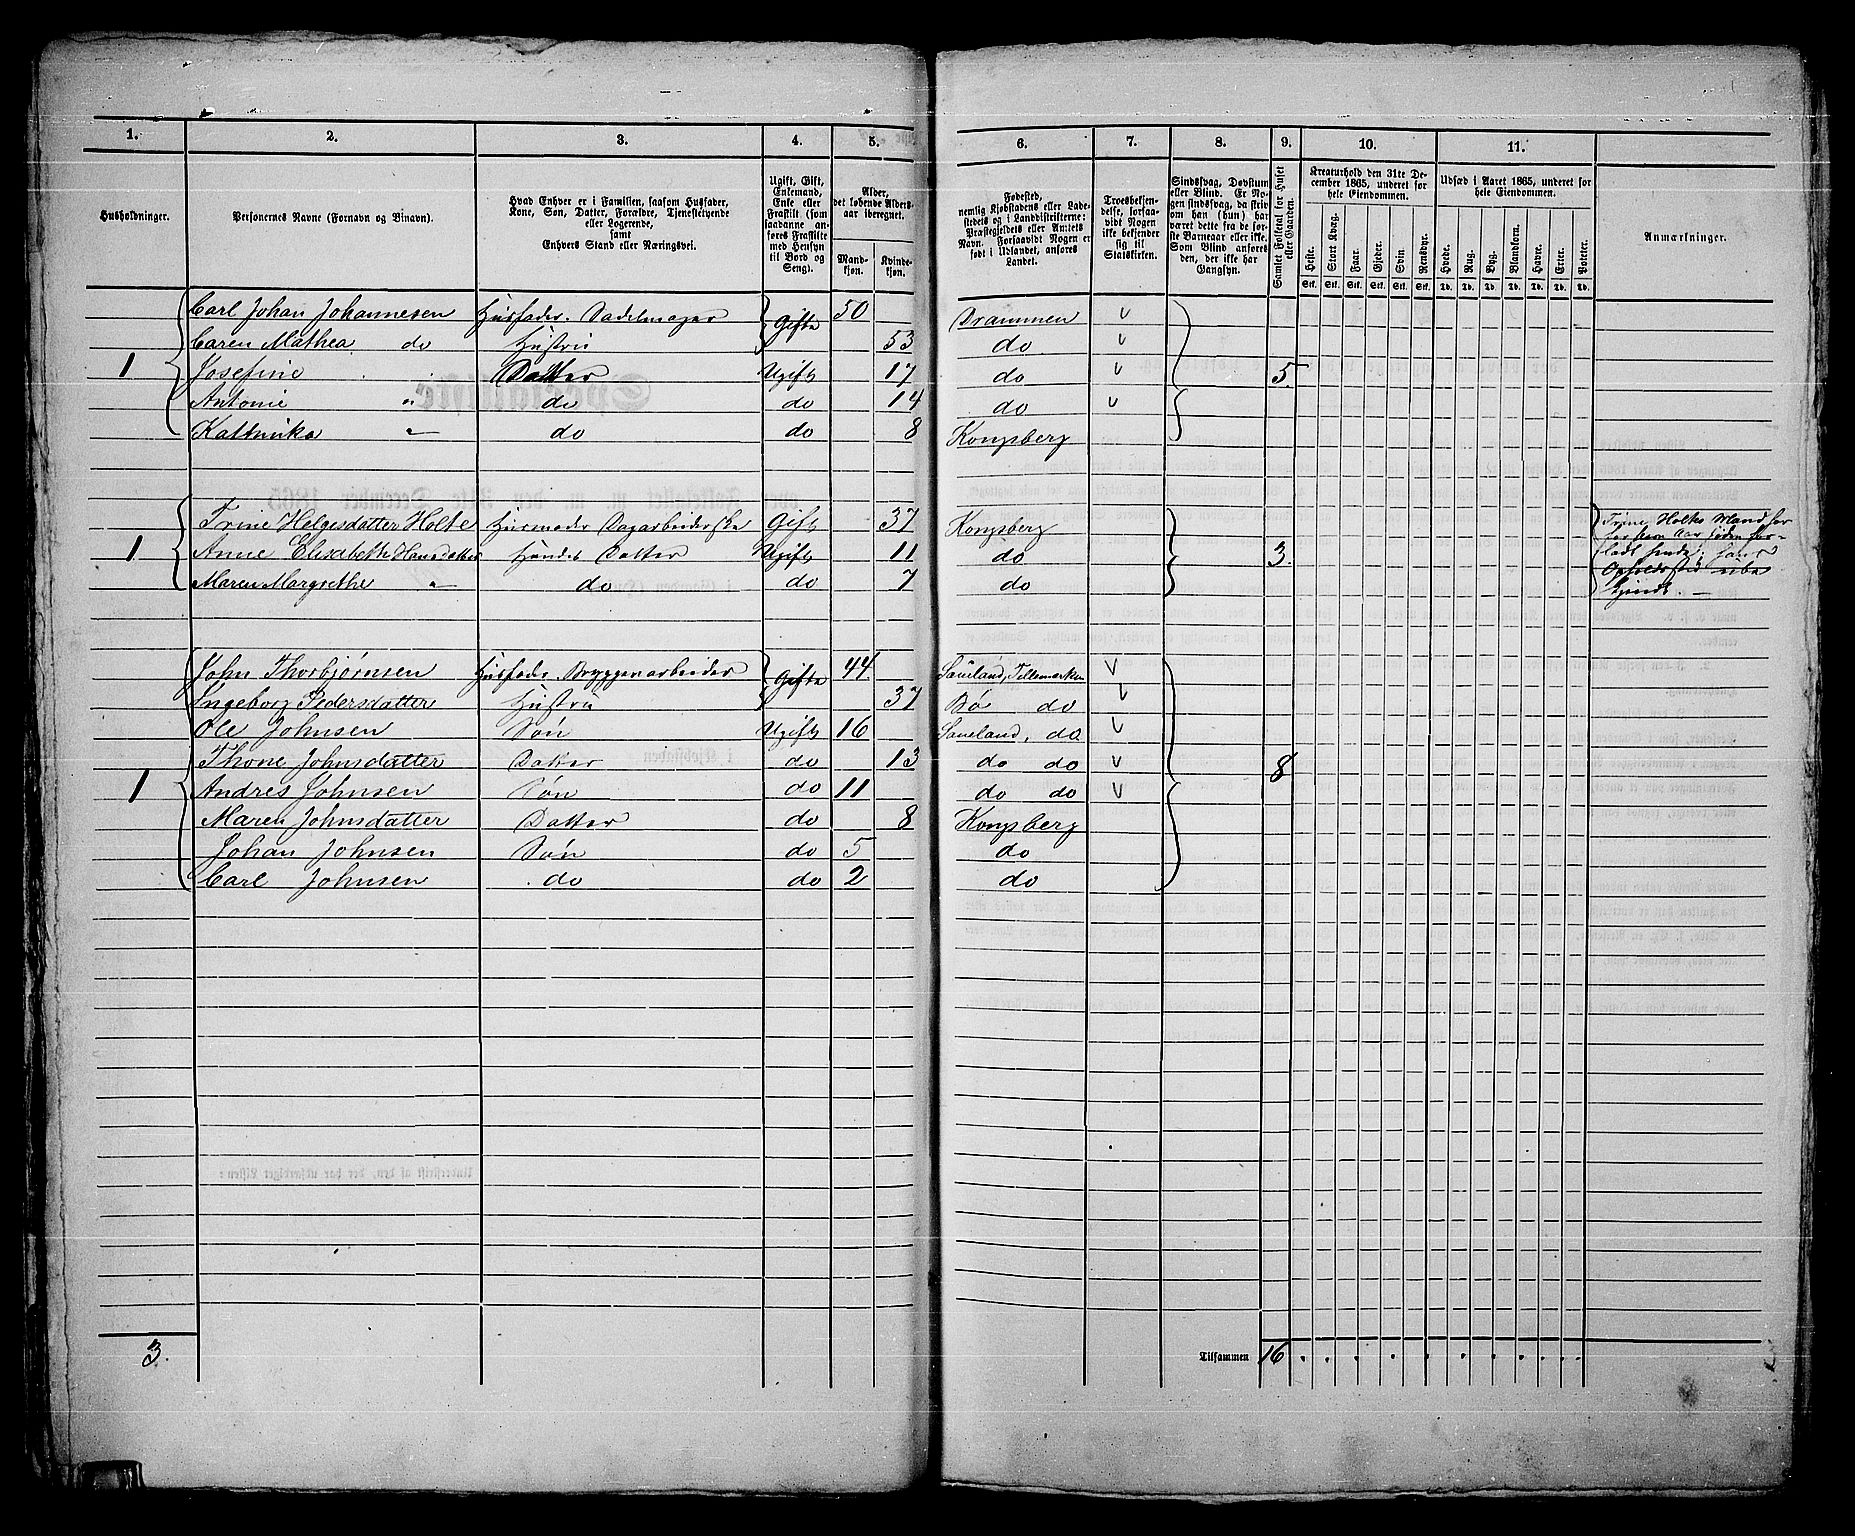 1. 2. 3. 4. 5. 6. 7. 8. 9. 10. 11.
Husholdninger.
Personernes Navne (Fornavn og Binavn).
Hvad Enhver er i Familien, saasom Husfader,
Kone, Søn, Datter, Forældre, Tjenestetyende
eller Logerende,
samt
Enhvers Stand eller Næringsvei.
Ugift, Gift,
Enkemand,
Enke eller
Fraskilt (som
saadanne an-
føres Fraskilte
med Hensyn
til Bord og
Seng).
Alder,
det løbende Alders-
aar iberegnet.
Mand-
kjøn.
Kvinde-
kjøn.
Fødested,
nemlig Kjøbstadens eller Lade-
stedets og i Landdistrikterne:
Præstegjeldets eller Amtets
Navn. Forsaavidt Nogen er
født i Udlandet, anføres
Landet.
Troesbekjen-
delse, forsaa-
vidt Nogen
ikke bekjender
sig til
Statskirken.
Sindssvag, Døvstum
eller Blind. Er No-
gen sindssvag, da skriv
om han (hun) har
været dette fra de før-
ste Barneaar eller ikke.
Som Blind anføres
den, der ikke har
Gangsyn.
Samlet Folketal for Huset
eller Gaarden.
Kreaturhold den 31te De-
cember 1865, underet for
hele Eiendommen.
Heste. Stort Kvæg. Faar. Gjeder. Svin. Rensdyr.
Stk. Stk. Stk. Stk. Stk. Stk.
Udsæd i Aaret 1865, underet for
hele Eiendommen.
Hvede. Rug. Byg. Blandkorn. Havre. Erter. Poteter.
Td. Td. Td. Td. Td. Td. Td.
Anmærkninger.
Carl Johan Johannesen Husfader. Sadelmager Gifte 50 Drammen v
Caren Mathea do Hustru 53 do v
1 Josefine " Datter Ugift 17 do v 5.
Antonie " do do 14 do v
Kathinka " do do 8 Kongsberg
Trine Helgesdatter Holte Husmoder Dagarbeiderske Gift 37 Kongsberg
1 Anne Elisabeth Hansdatter Hendes Datter Ugift 11 do 3.
Maren Margrethe " do do 7 do
Trine Holtes Mand har
for fem Aar siden for-
ladt hende; hans
Opholdssted ube
kjendt. —
John Thorbjørnsen Husfader. Bryggerarbeider Gifte 44 Saueland, Tellemarken v
Ingeborg Pedersdatter Hustru 37 Bø do v
Ole Johnsen Søn Ugift 16 Saueland, do v
Thone Johnsdatter Datter do 13 do do v 8
1 Andres Johnsen Søn do 11 do do v
Maren Johnsdatter Datter do 8 Kongsberg
Johan Johnsen Søn do 5 do
Carl Johnsen do do 2 do
3. Tilsammen 16